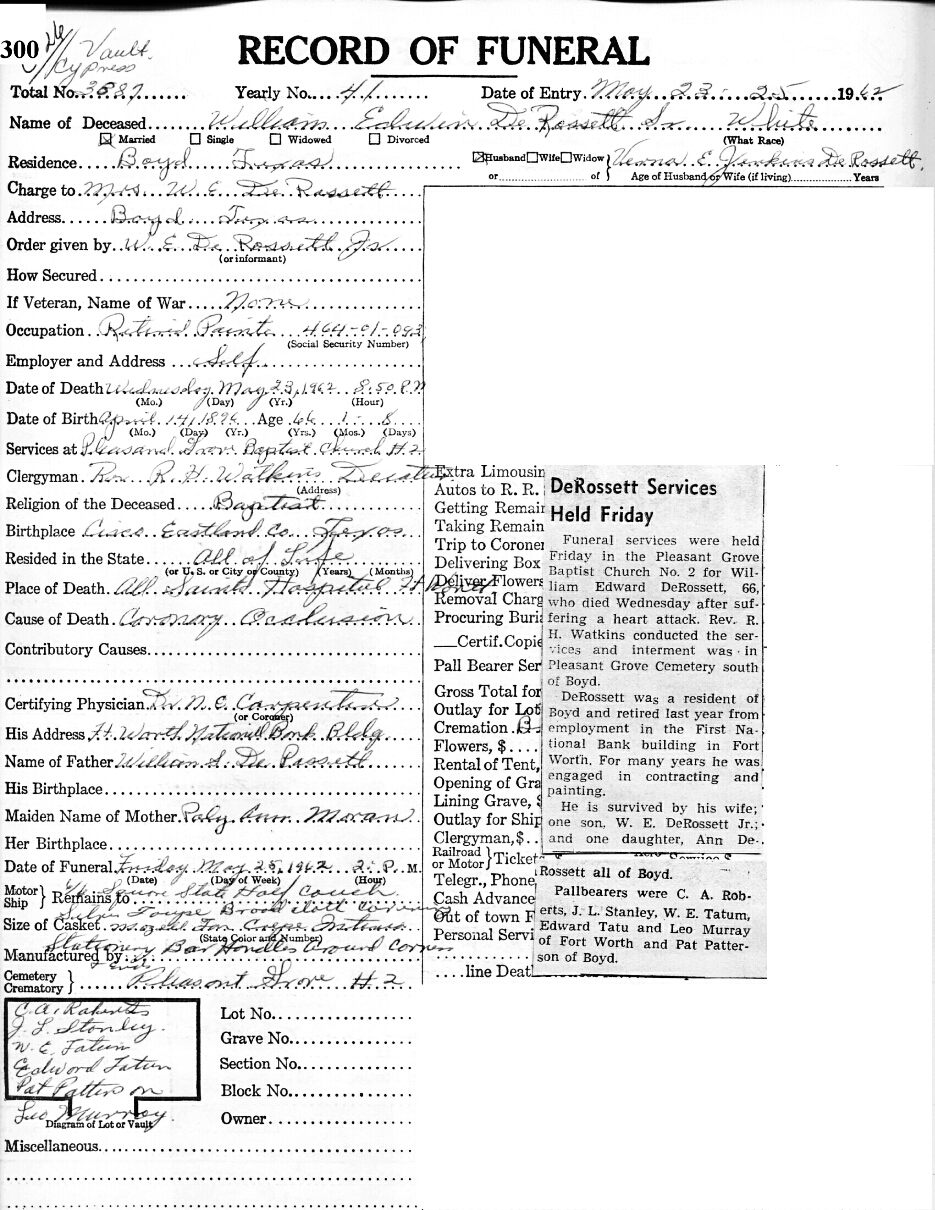 300 Vault
Cypress
RECORD OF FUNERAL
Total No. 3587 Yearly No. 41 Date of Entry. May 23 - 25 1962
Name of Deceased William Edwin De Rossett Sr White
Married Single Widowed Divorced (What Race)
Residence Boyd Texas Husband Wife Widow or of } Verna E. Jenkins De Rossett
Age of Husband or Wife (if living) Years
Charge to Mrs. W. E. De Rossett
Address Boyd Texas
Order given by W. E. De Rossett Jr
(or informant)
How Secured
If Veteran, Name of War None
Occupation Retired 464-01-093
(Social Security Number)
Employer and Address Self
Date of Death Wednesday May 23, 1962 8:50 P.M
(Mo.) (Day) (Yr.) (Hour)
Date of Birth April 14, 1896 Age 66 1 8
(Mo.) (Day) (Yr.) (Yrs.) (Mos.) (Days)
Services at Pleasand Grove Baptist Church #2
Clergyman Rev. R. H. Watkins Decatur
(Address)
Religion of the Deceased Baptist
Birthplace Cisco Eastland Co. Texas
Resided in the State All of Life
(or U. S. or City or County) (Years) (Months)
Place of Death All Saints Hospital Ft Worth
Cause of Death Coronary Occlusion
Contributory Causes
Certifying Physician Dr. N. C. Carpenter
(or Coroner)
His Address Ft. Worth National Bank Bldg
Name of Father William S. De Rossett
His Birthplace
Maiden Name of Mother Ann Moran
Her Birthplace
Date of Funeral Friday May 25, 1962 2: P. M.
(Date) (Day of Week) (Hour)
Square State Half Couch
Motor Ship } Remains to
Silver Taupe Broadcloth Covering
Size of Casket Crepe Interior
(State Color and Number)
Stationery Bar Handles Around Corners
Manufactured by & Ends
Cemetery Crematory } Pleasant Grove #2
C. A. Roberts
J. L. Stanley
W. E. Tatum
Edward Tatum
Pat Patterson
Leo Murray
Diagram of Lot or Vault
Lot No.
Grave No.
Section No.
Block No.
Owner
Miscellaneous
Extra Limousin
Autos to R. R.
Getting Remain
Taking Remain
Trip to Coroner
Delivering Box
Deliver Flowers
Removal Charg
Procuring Buri
Certif. Copie
Pall Bearer Ser
Gross Total for
Outlay for Lot
Cremation
Flowers, $
Rental of Tent,
Opening of Gra
Lining Grave, $
Outlay for Ship
Clergyman, $
Railroad or Motor } Ticket
Telegr., Phone
Cash Advance
Out of town F
Personal Servi
line Deat
DeRossett Services
Held Friday
Funeral services were held
Friday in the Pleasant Grove
Baptist Church No. 2 for Wil-
liam Edward DeRossett, 66,
who died Wednesday after suf-
fering a heart attack. Rev. R.
H. Watkins conducted the ser-
vices and interment was in
Pleasant Grove Cemetery south
of Boyd.
DeRossett was a resident of
Boyd and retired last year from
employment in the First Na-
tional Bank building in Fort
Worth. For many years he was
engaged in contracting and
painting.
He is survived by his wife;
one son, W. E. DeRossett Jr.;
and one daughter, Ann De-
Rossett all of Boyd.
Pallbearers were C. A. Rob-
erts, J. L. Stanley, W. E. Tatum,
Edward Tatu and Leo Murray
of Fort Worth and Pat Patter-
son of Boyd.